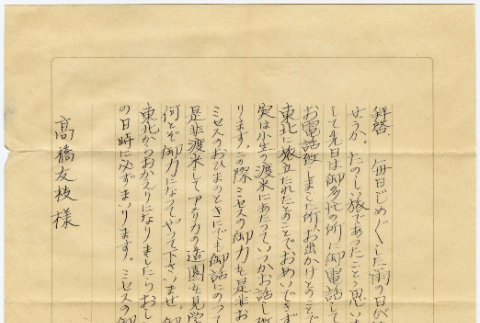 拝啓 毎日じめ〱した雨の日が
せうか。たのしい旅であったこと〻思いま
して先日は御多忙の所に御電話して
お電話致しました所、お出かけとのことで
東北に旅立たれたとのことでおめいできず
実は小生の渡米にあたっていつかお話し致
ります。この際ミセスの御力を是非お
ミセスのおひまのときにでも御話にのって
是非渡米してアメリカの造園を見学
何とぞ御力になってやって下さいませ
東北からおかえりになりましたらおし
の日時に必ずまいります。ミセスの
高橋友枝様